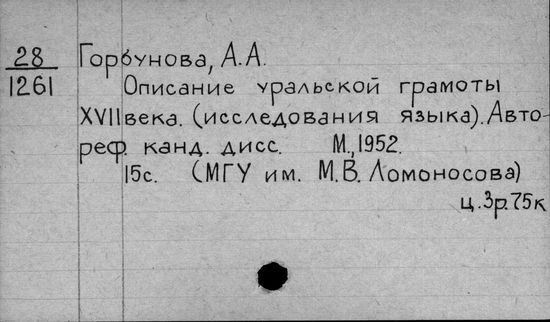 28
1261
Горбунова, А.А.
Описание уральской грамоты
XVII века. (исследования языка). Авто-
реф. канд. дисс. М., 1952.
15с. (МГУ им. М.В. Ломоносова)
ц. 3р. 75к